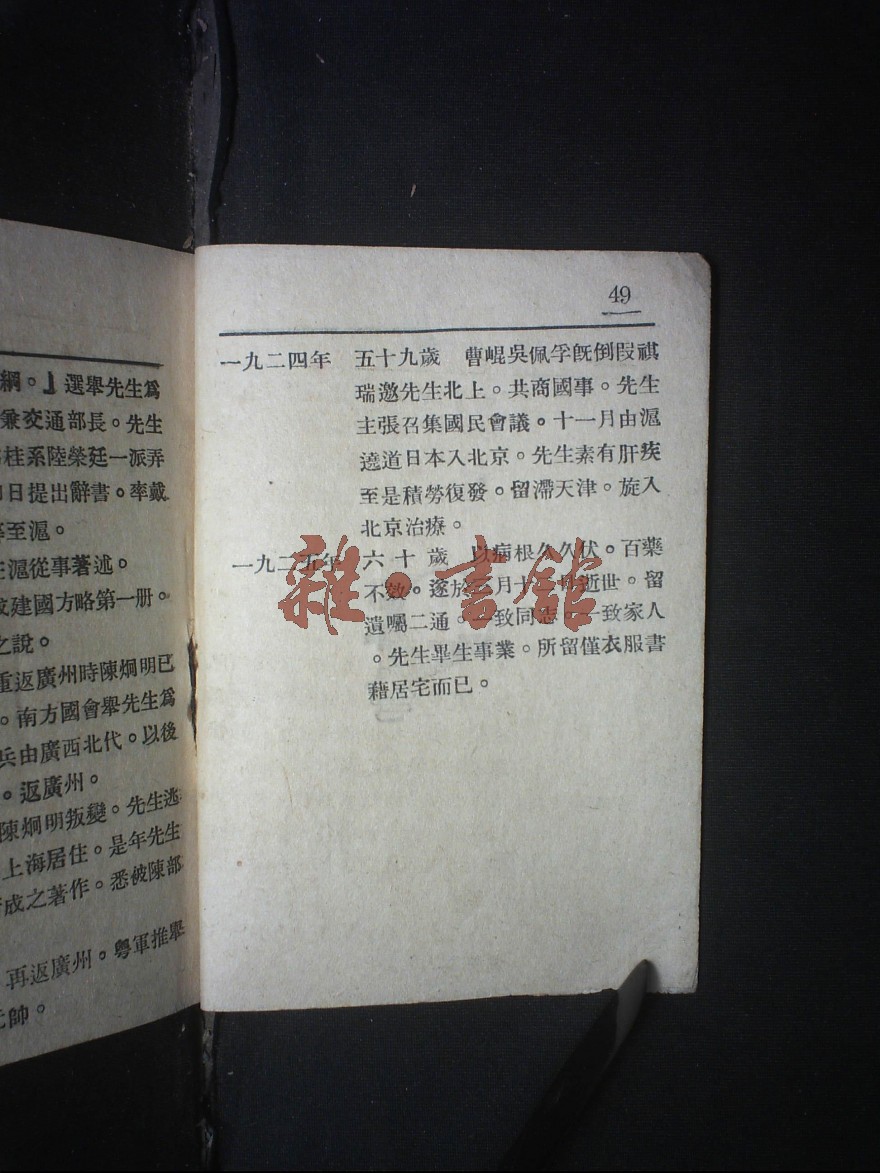 綱。』選舉先生爲
兼交通部長。先生
桂系陸榮廷一派弄
日提出辭書。率戴
至滬。
滬從事著述。
建國方略第一册。
之說。
重返廣州時陳炯明已
。南方國會舉先生爲
兵由廣西北代。以後
。返廣州。
陳炯明叛變。先生逃
上海居住。是年先生
成之著作。悉被陳部
再返廣州。粵軍推舉
帥。
49
一九二四年 五十九歲 曹崐吳佩孚旣倒段祺
瑞邀先生北上。共商國事。先生
主張召集國民會議。十一月由滬
遶道日本入北京。先生素有肝疾
至是積勞復發。留滯天津。旋入
北京治療。
一九二五年 六十歲 以病根久久伏。百藥
不效。遂於三月十二日逝世。留
遺囑二通。一致同志。一致家人
。先生畢生事業。所留僅衣服書
藉居宅而已。
雜·書館